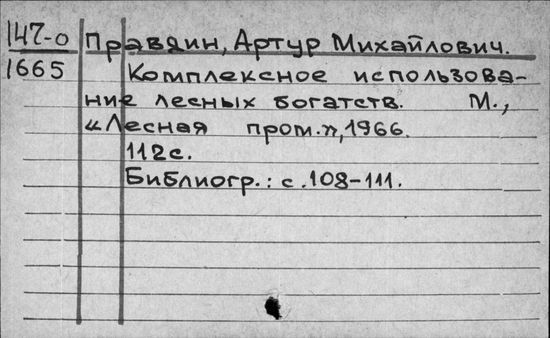 147-о
1665
Правдин, Артур Михайлович.
Комплексное использова-
ние лесных богатств. М.,
«Лесная пром.», 1966.
112 с.
Библиогр.: с. 108-111.